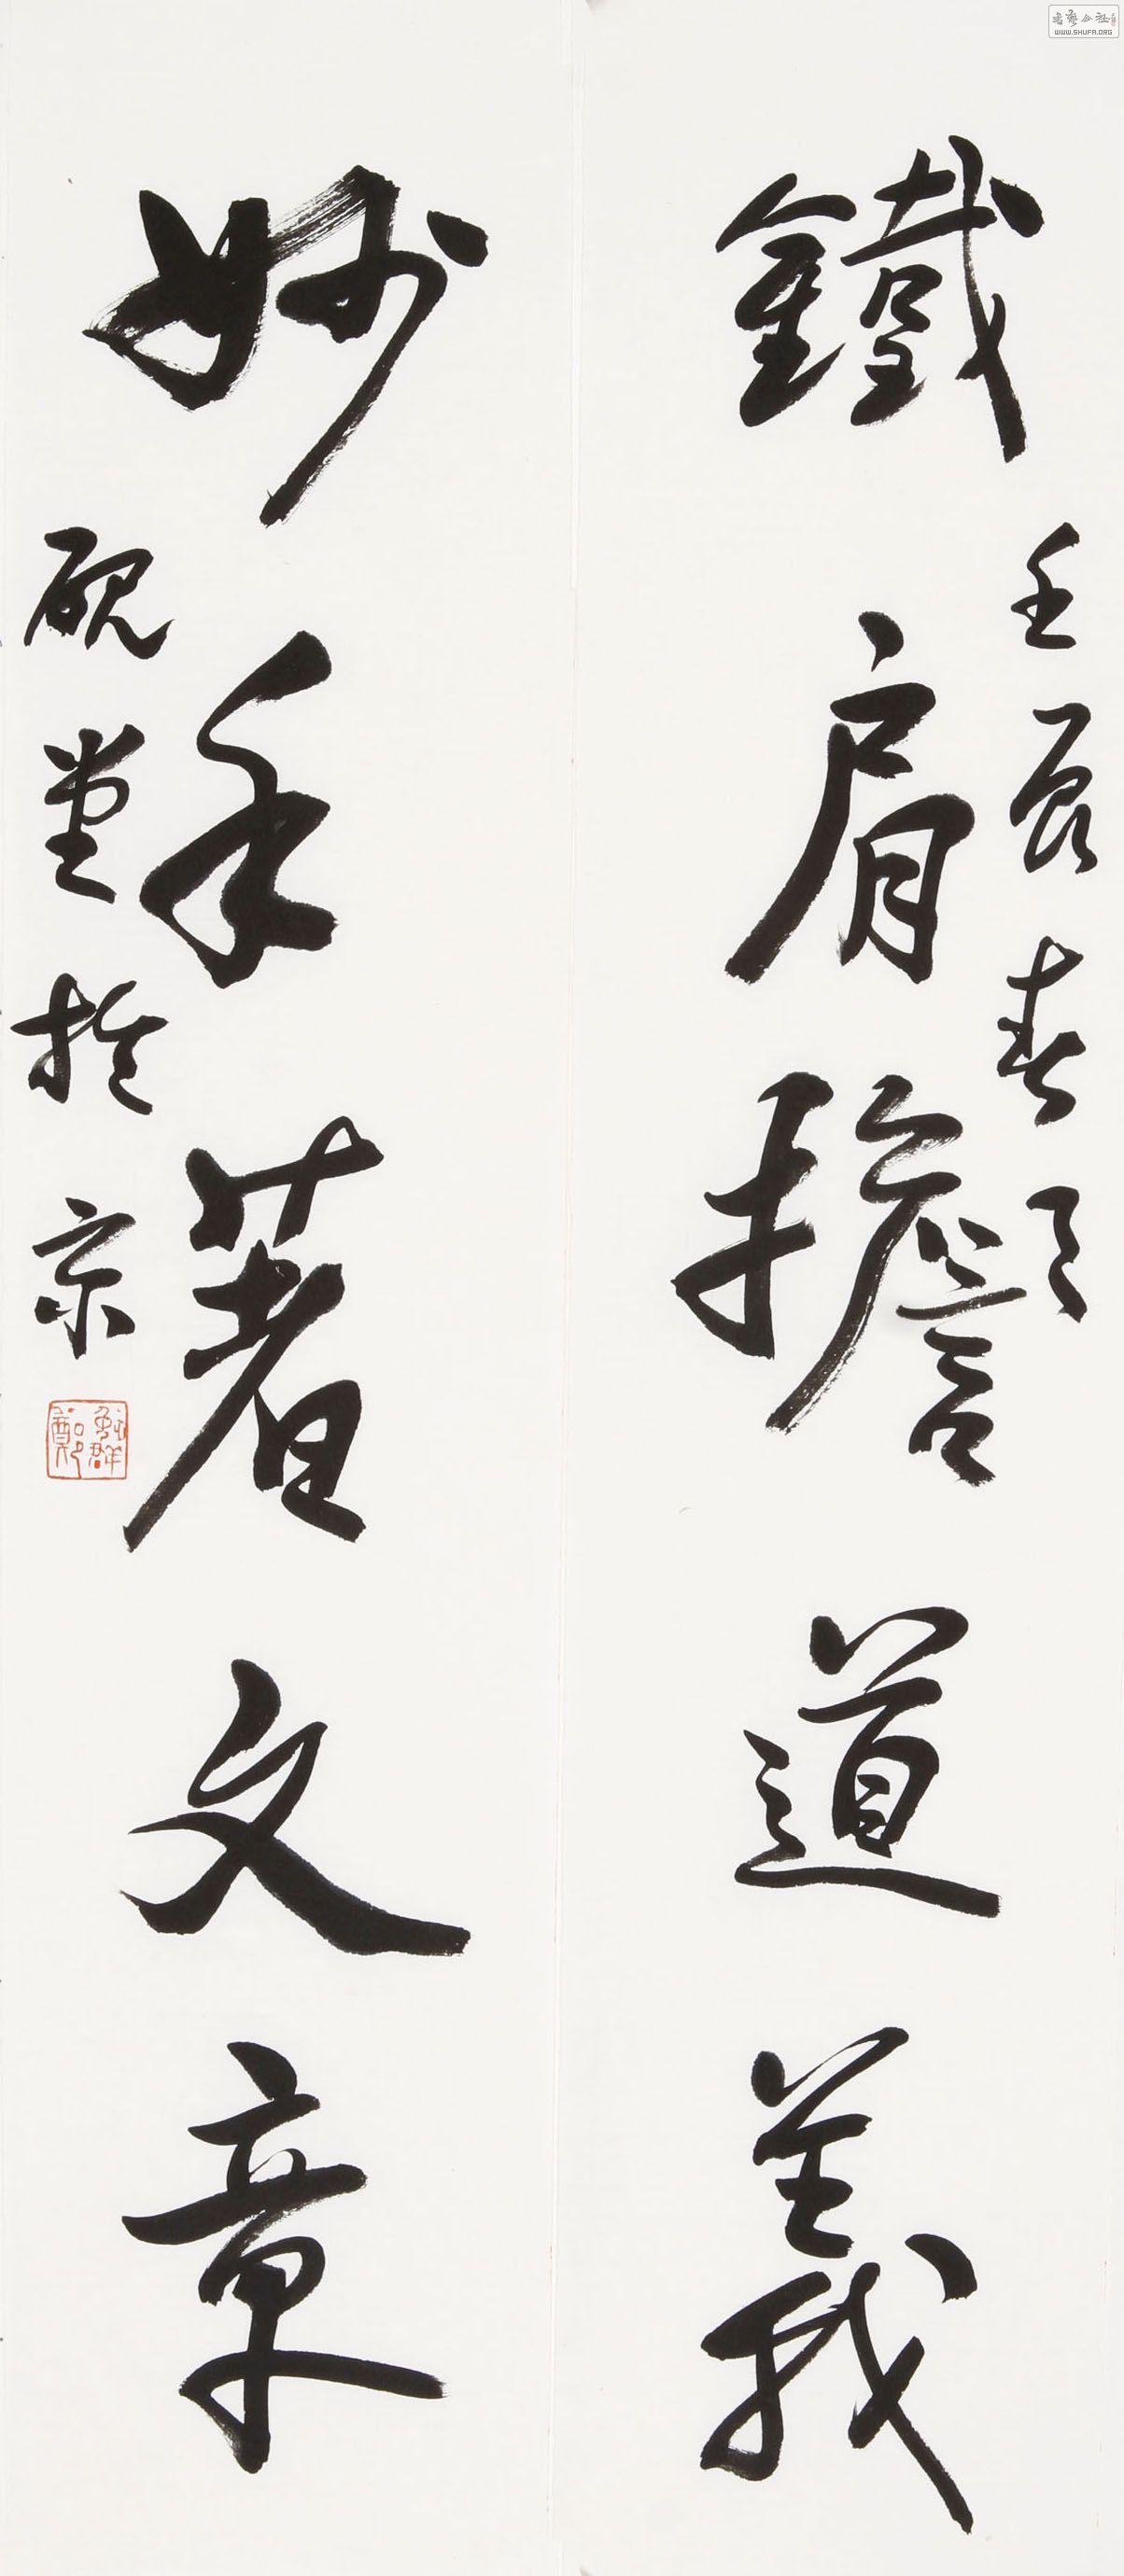 壬辰春
鐵肩擔道義
妙手著文章
硯堂於京
書藝公社
WWW.SHUFA.ORG